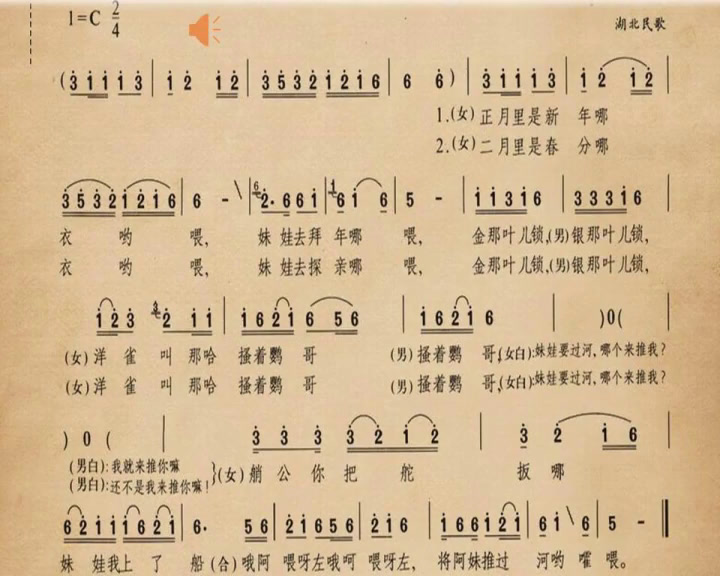 1=C 2/4
湖北民歌
(3̇ i̇ i̇ i̇ 3̇ | i̇ 2̇ i̇ 2̇ | 3̇ 5̇ 3̇ 2̇ i̇ 2̇ i̇ 6 | 6 6̇) | 3̇ i̇ i̇ i̇ 3̇ | i̇ 2̇ i̇ 2̇ |
1.(女) 正月里是新 年哪
2.(女) 二月里是春 分哪
3̇ 5̇ 3̇ 2̇ i̇ 2̇ i̇ 6 | 6 - \ | 6 2̇· 6 6 i̇ | i̇ 6 i̇ 6 | 5 - | i̇ i̇ 3̇ i̇ 6 | 3̇ 3̇ 3̇ i̇ 6 |
衣 哟 喂, 妹 娃去拜 年哪 喂, 金那叶儿锁,(男)银那叶儿锁,
衣 哟 喂, 妹 娃去探 亲哪 喂, 金那叶儿锁,(男)银那叶儿锁,
i̇ 2̇ 3̇ 3̇ 2̇ i̇ i̇ | i̇ 6 2̇ i̇ 6 5 6 | i̇ 6 2̇ i̇ 6 | )0( |
(女) 洋 雀 叫 那哈 搔着鹦 哥 (男) 搔着鹦 哥,(女白):妹娃要过河,哪个来推我?
(女) 洋 雀 叫 那哈 搔着鹦 哥 (男) 搔着鹦 哥,(女白):妹娃要过河,哪个来推我?
) 0 ( | 3̇ 3̇ 3̇ | 3̇ 2̇ i̇ 2̇ | 3̇ 2̇ i̇ 6 |
(男白):我就来推你嘛
(男白):还不是我来推你嘛!
}(女) 艄 公 你 把 舵 扳 哪
6 2̇ i̇ i̇ i̇ 6 2̇ i̇ | 6· 5 6 | 2̇ i̇ 6 5 6 | 2̇ i̇ 6 | i̇ 6 6 i̇ 2̇ i̇ | 6 i̇ \ 6 | 5 - ‖
妹 娃我上 了 船 (合) 哦阿 喂呀左哦呵 喂呀左, 将阿妹推过 河哟 嚯 喂。